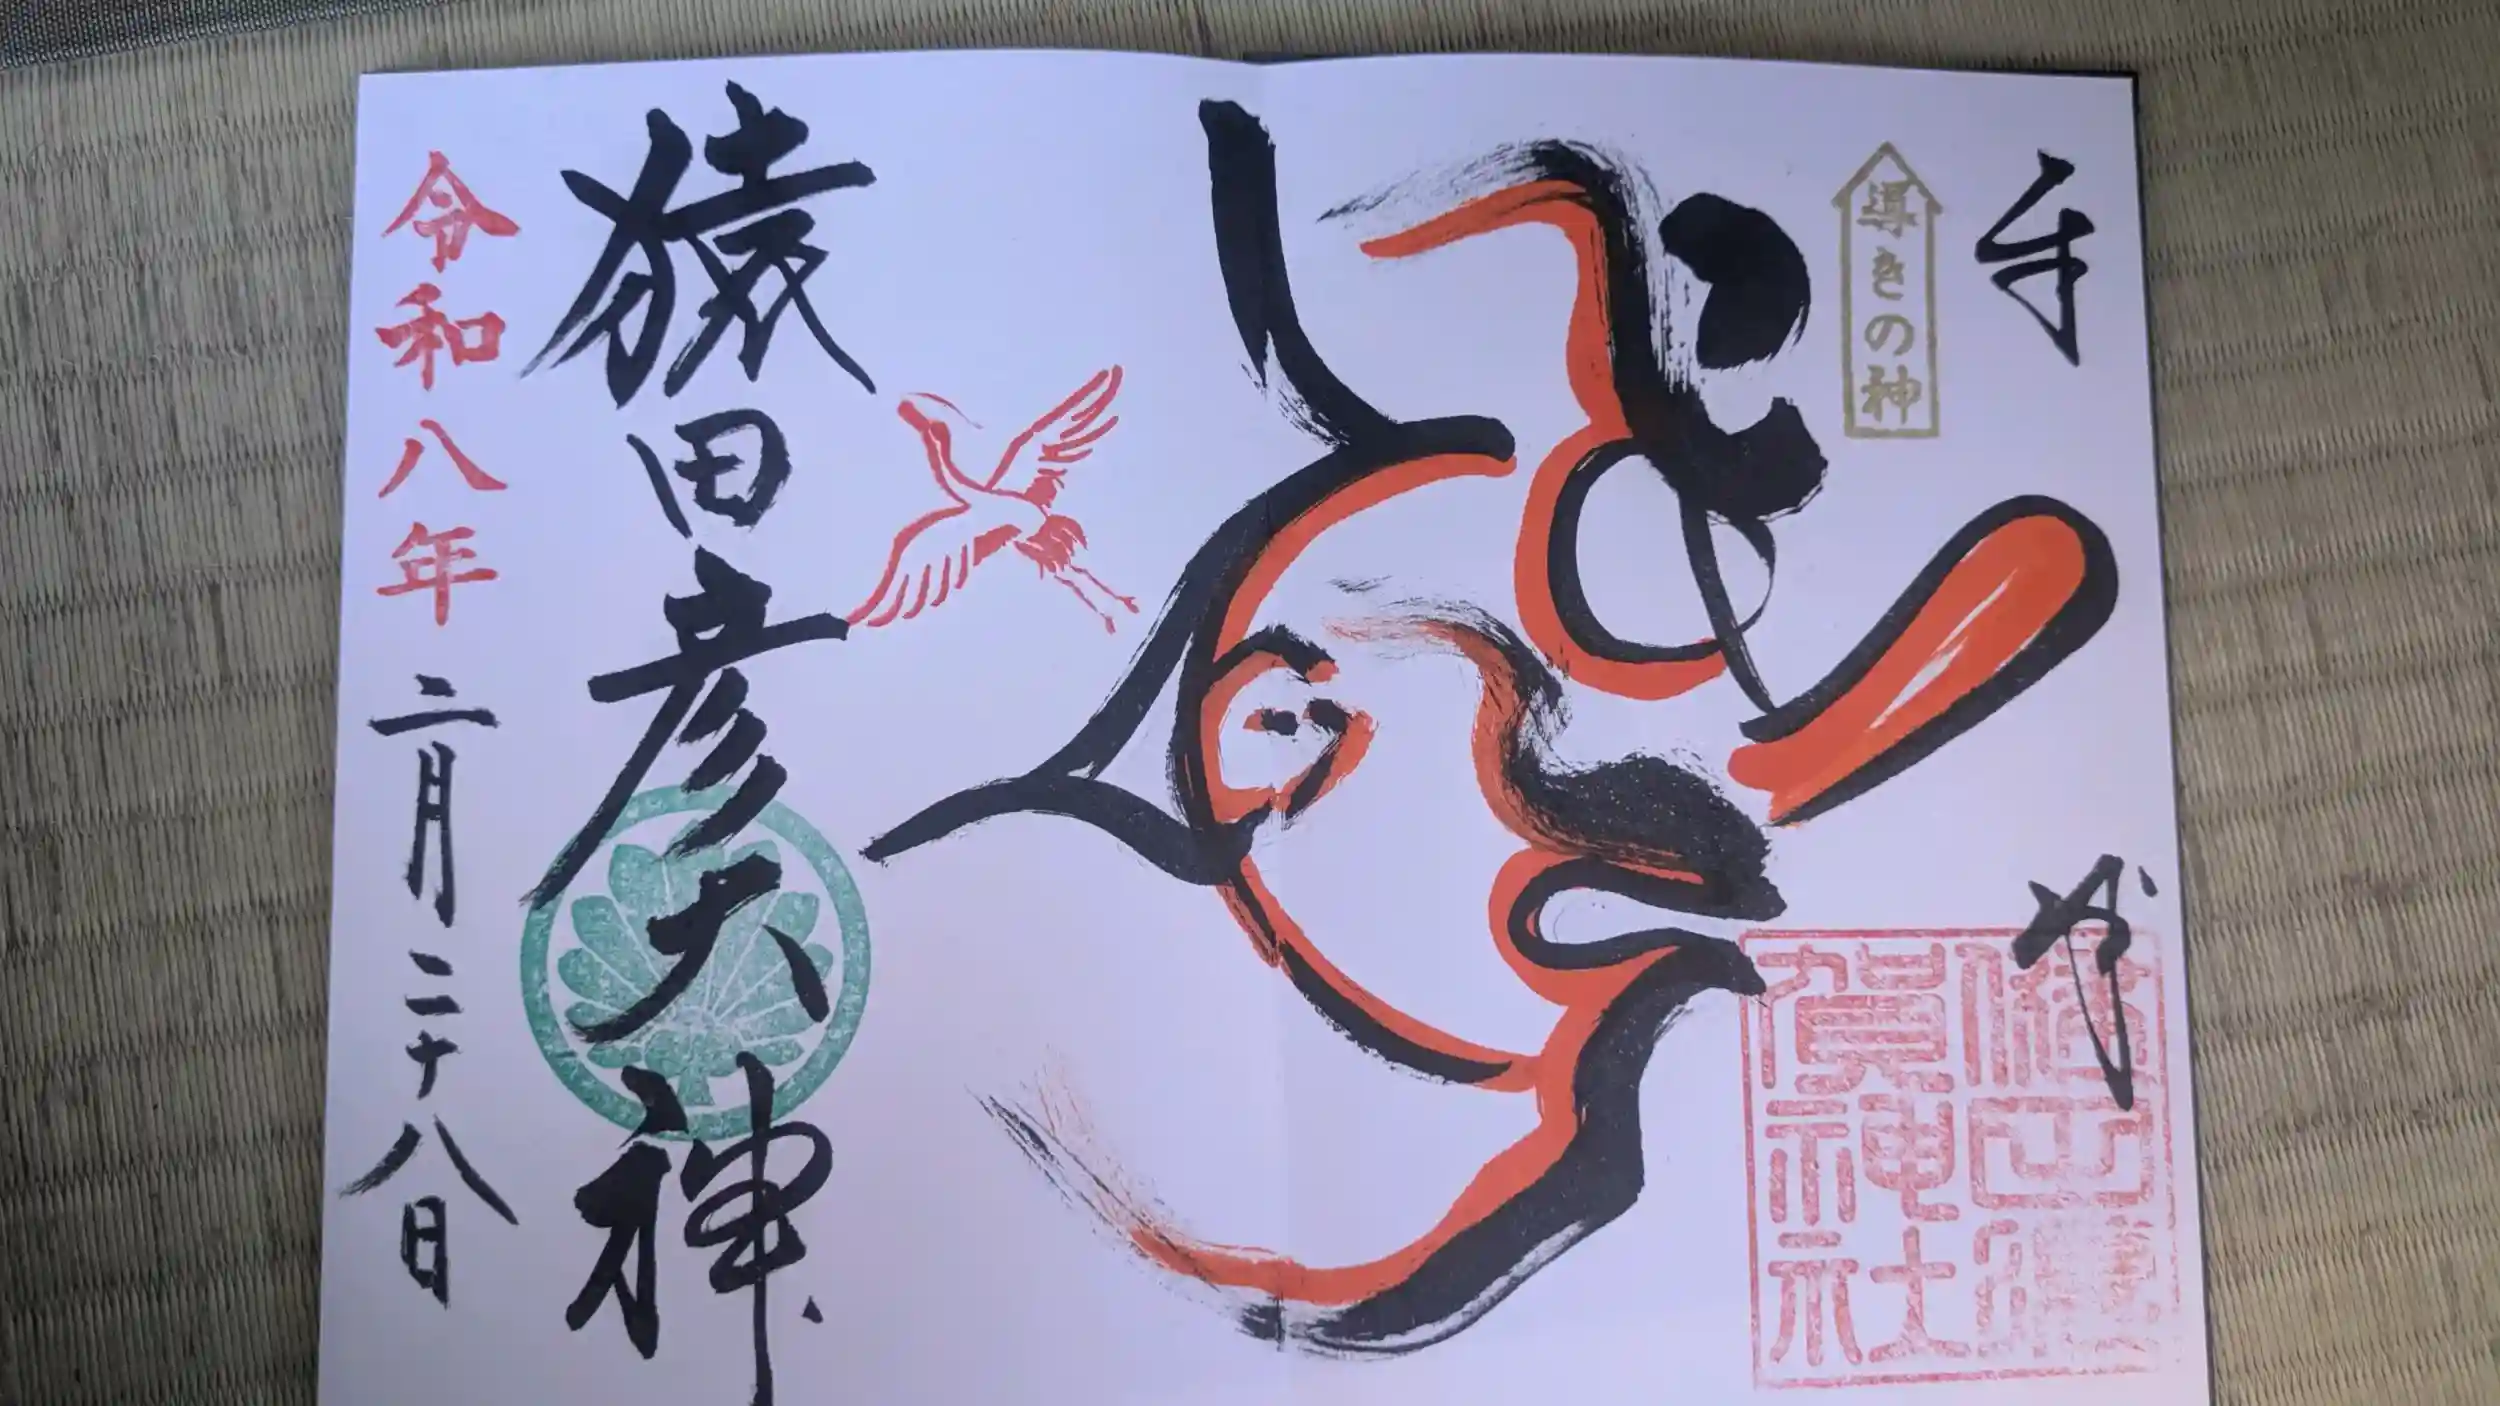 奉拝
導きの神
賀神社
猿田彦大神
令和八年二月二十八日